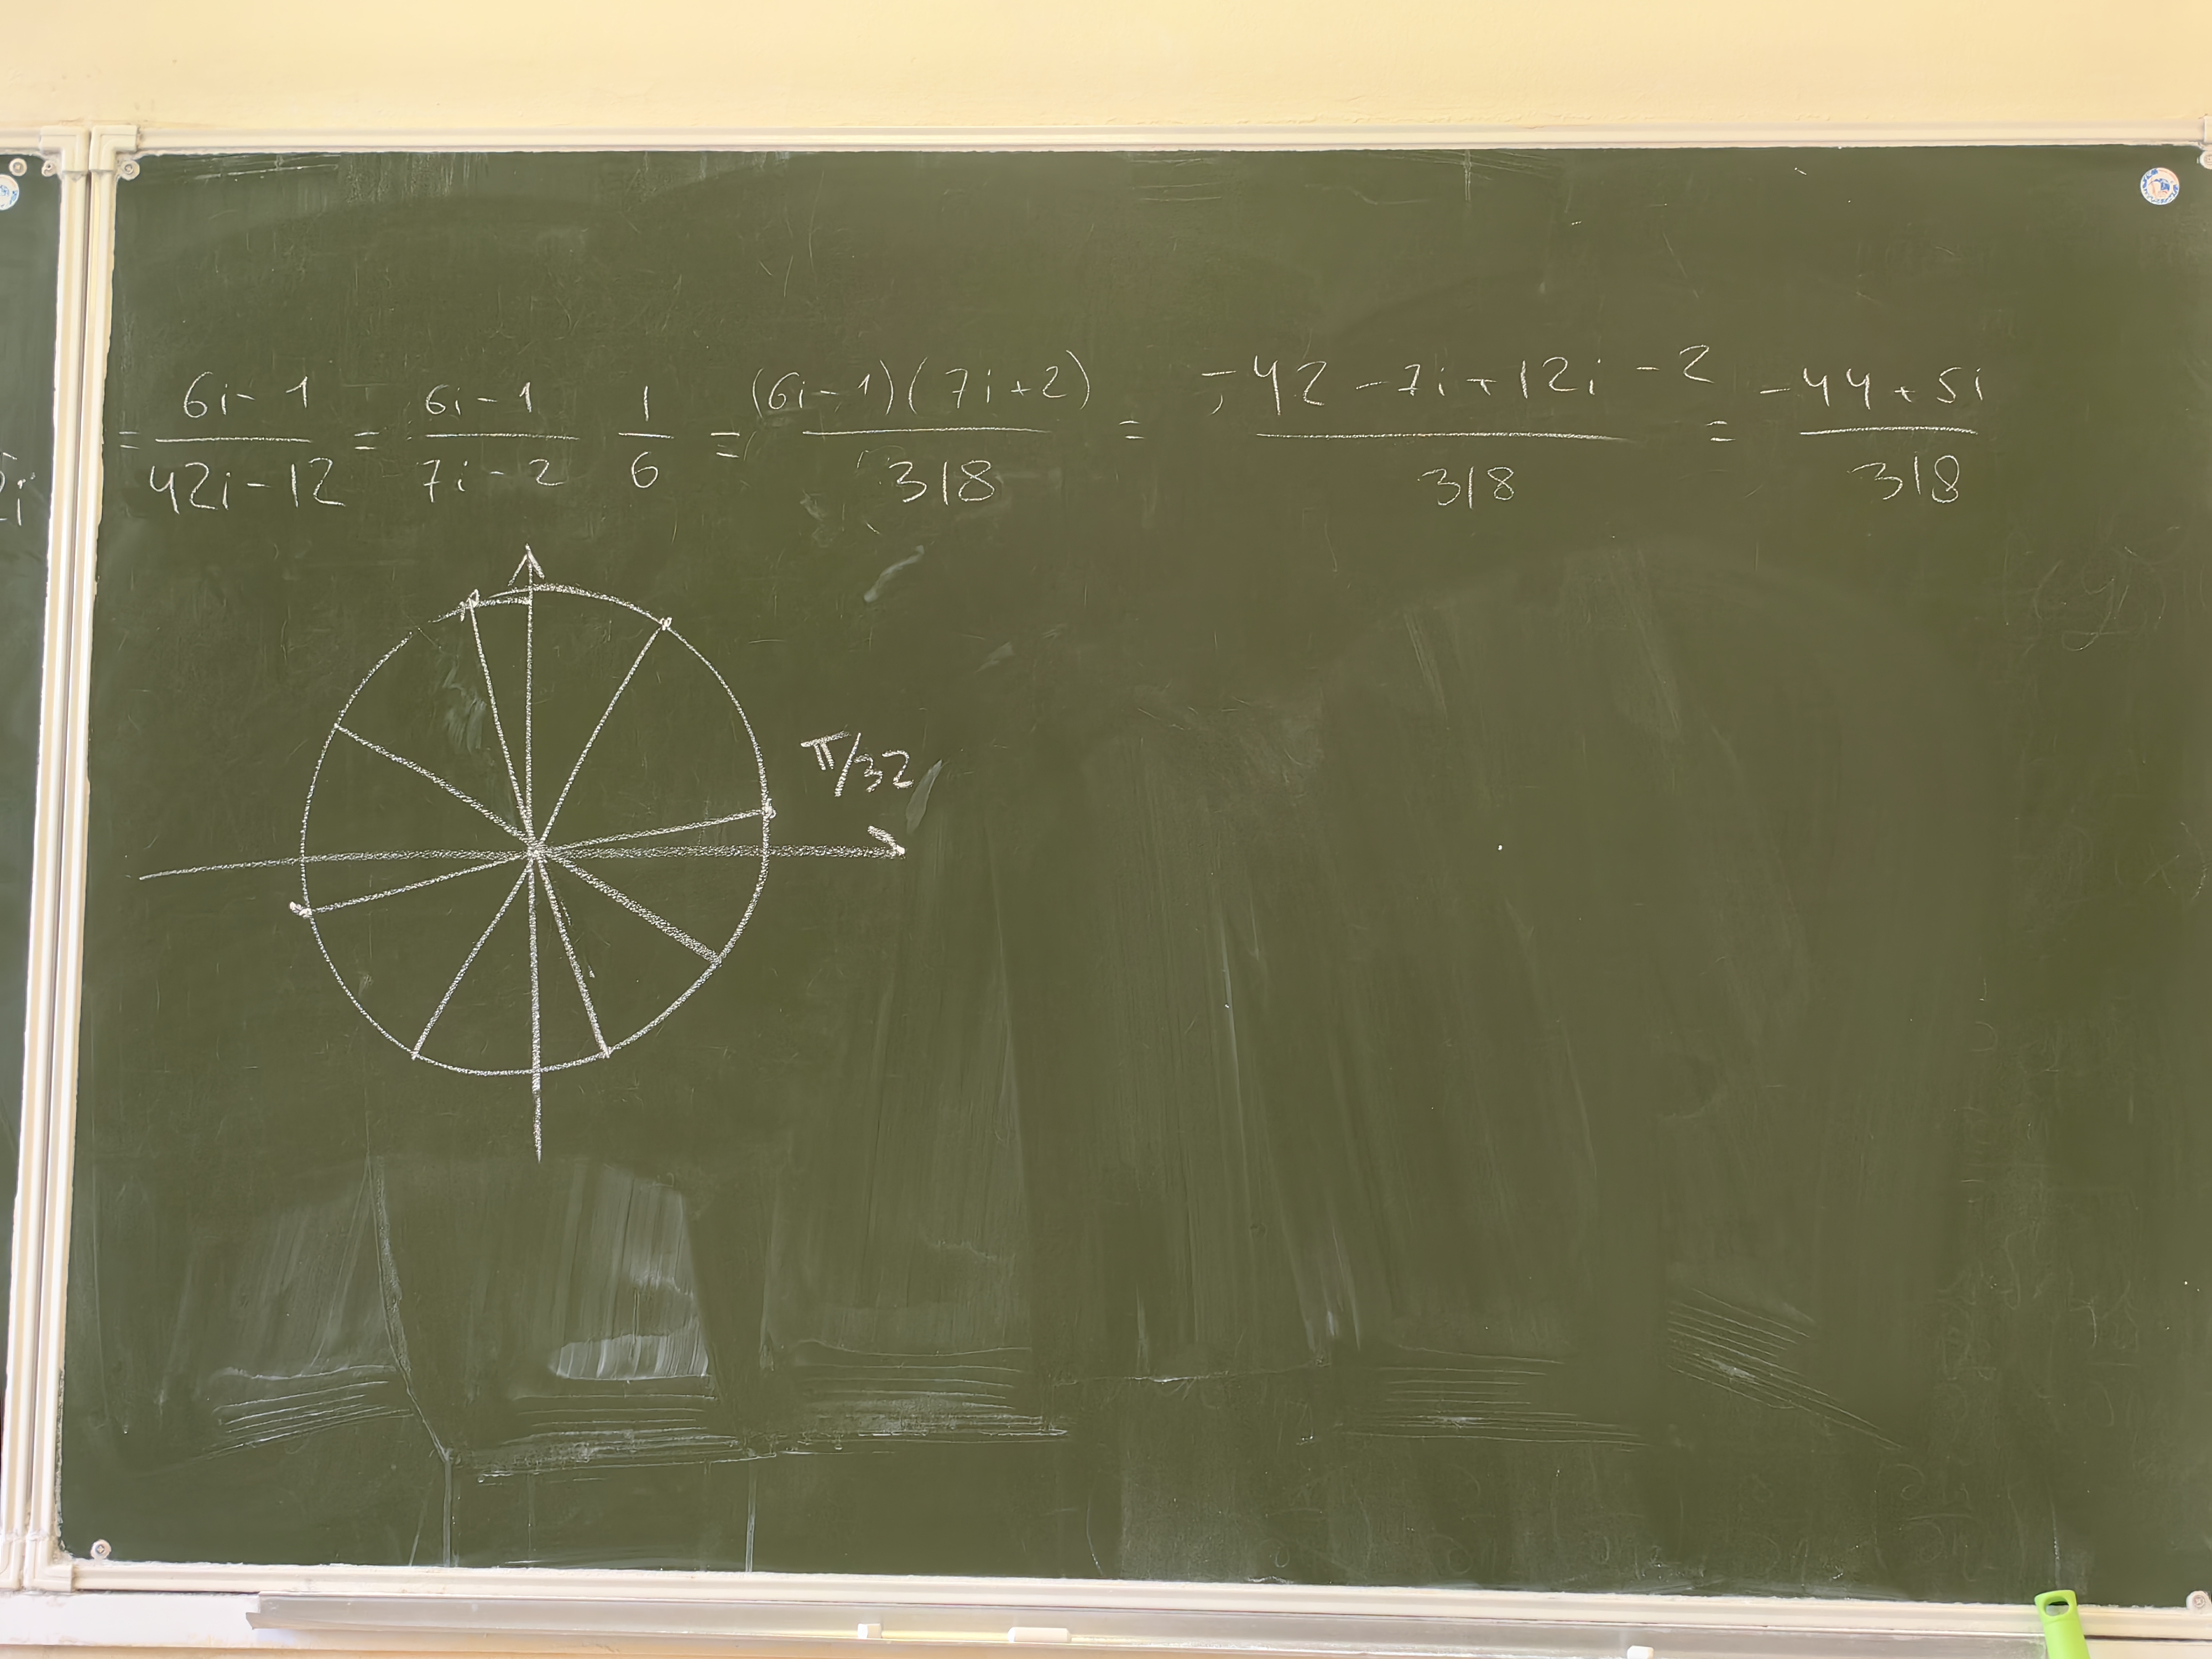 = (6i-1)/(42i-12) = (6i-1)/(7i-2) 1/6 = (6i-1)(7i+2)/318 = (-42-7i+12i-2)/318 = (-44+5i)/318
π/32